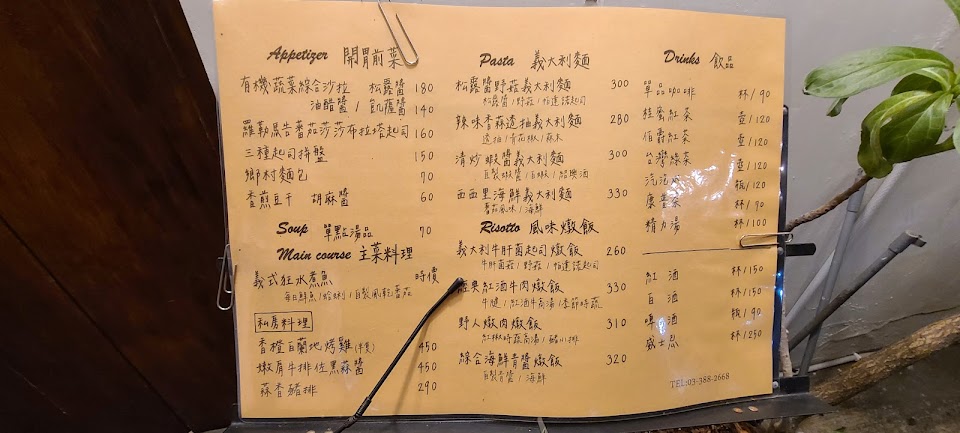 Appetizer 開胃前菜
有機蔬菜綜合沙拉 松露醬 180
油醋醬 / 凱薩醬 140
羅勒馬告蕃茄莎莎布拉塔起司 160
三種起司拼盤 150
鄉村麵包 70
香煎豆干 胡麻醬 60
Soup 單點湯品 70
Main course 主菜料理
義式狂水煮魚 時價
每日鮮魚/蛤蜊/自製風乾蕃茄
私房料理
香橙白蘭地烤雞(半隻) 450
嫩肩牛排佐黑蒜醬 450
蒜香豬排 290
Pasta 義大利麵
松露醬野菇義大利麵 300
松露醬/野菇/帕達諾起司
辣味香蒜透抽義大利麵 280
透抽/青花椒/蒜末
清炒蝦醬義大利麵 300
自製蝦醬/白蝦/紹興酒
西西里海鮮義大利麵 330
蕃茄風味/海鮮
Risotto 風味燉飯
義大利牛肝菌起司燉飯 260
牛肝菌菇/野菇/帕達諾起司
紅酒牛肉燉飯 330
牛腱/紅酒牛高湯/季節時蔬
野人燉肉燉飯 310
紅椒時蔬高湯/豬小排
綜合海鮮青醬燉飯 320
自製青醬/海鮮
Drinks 飲品
單品咖啡 杯/90
桂蜜紅茶 壺/120
伯爵紅茶 壺/120
台灣綠茶 壺/120
汽泡水 瓶/120
康普茶 杯/90
精力湯 杯/100
紅酒 杯/150
白酒 杯/150
啤酒 瓶/90
威士忌 杯/250
TEL:03-388-2668